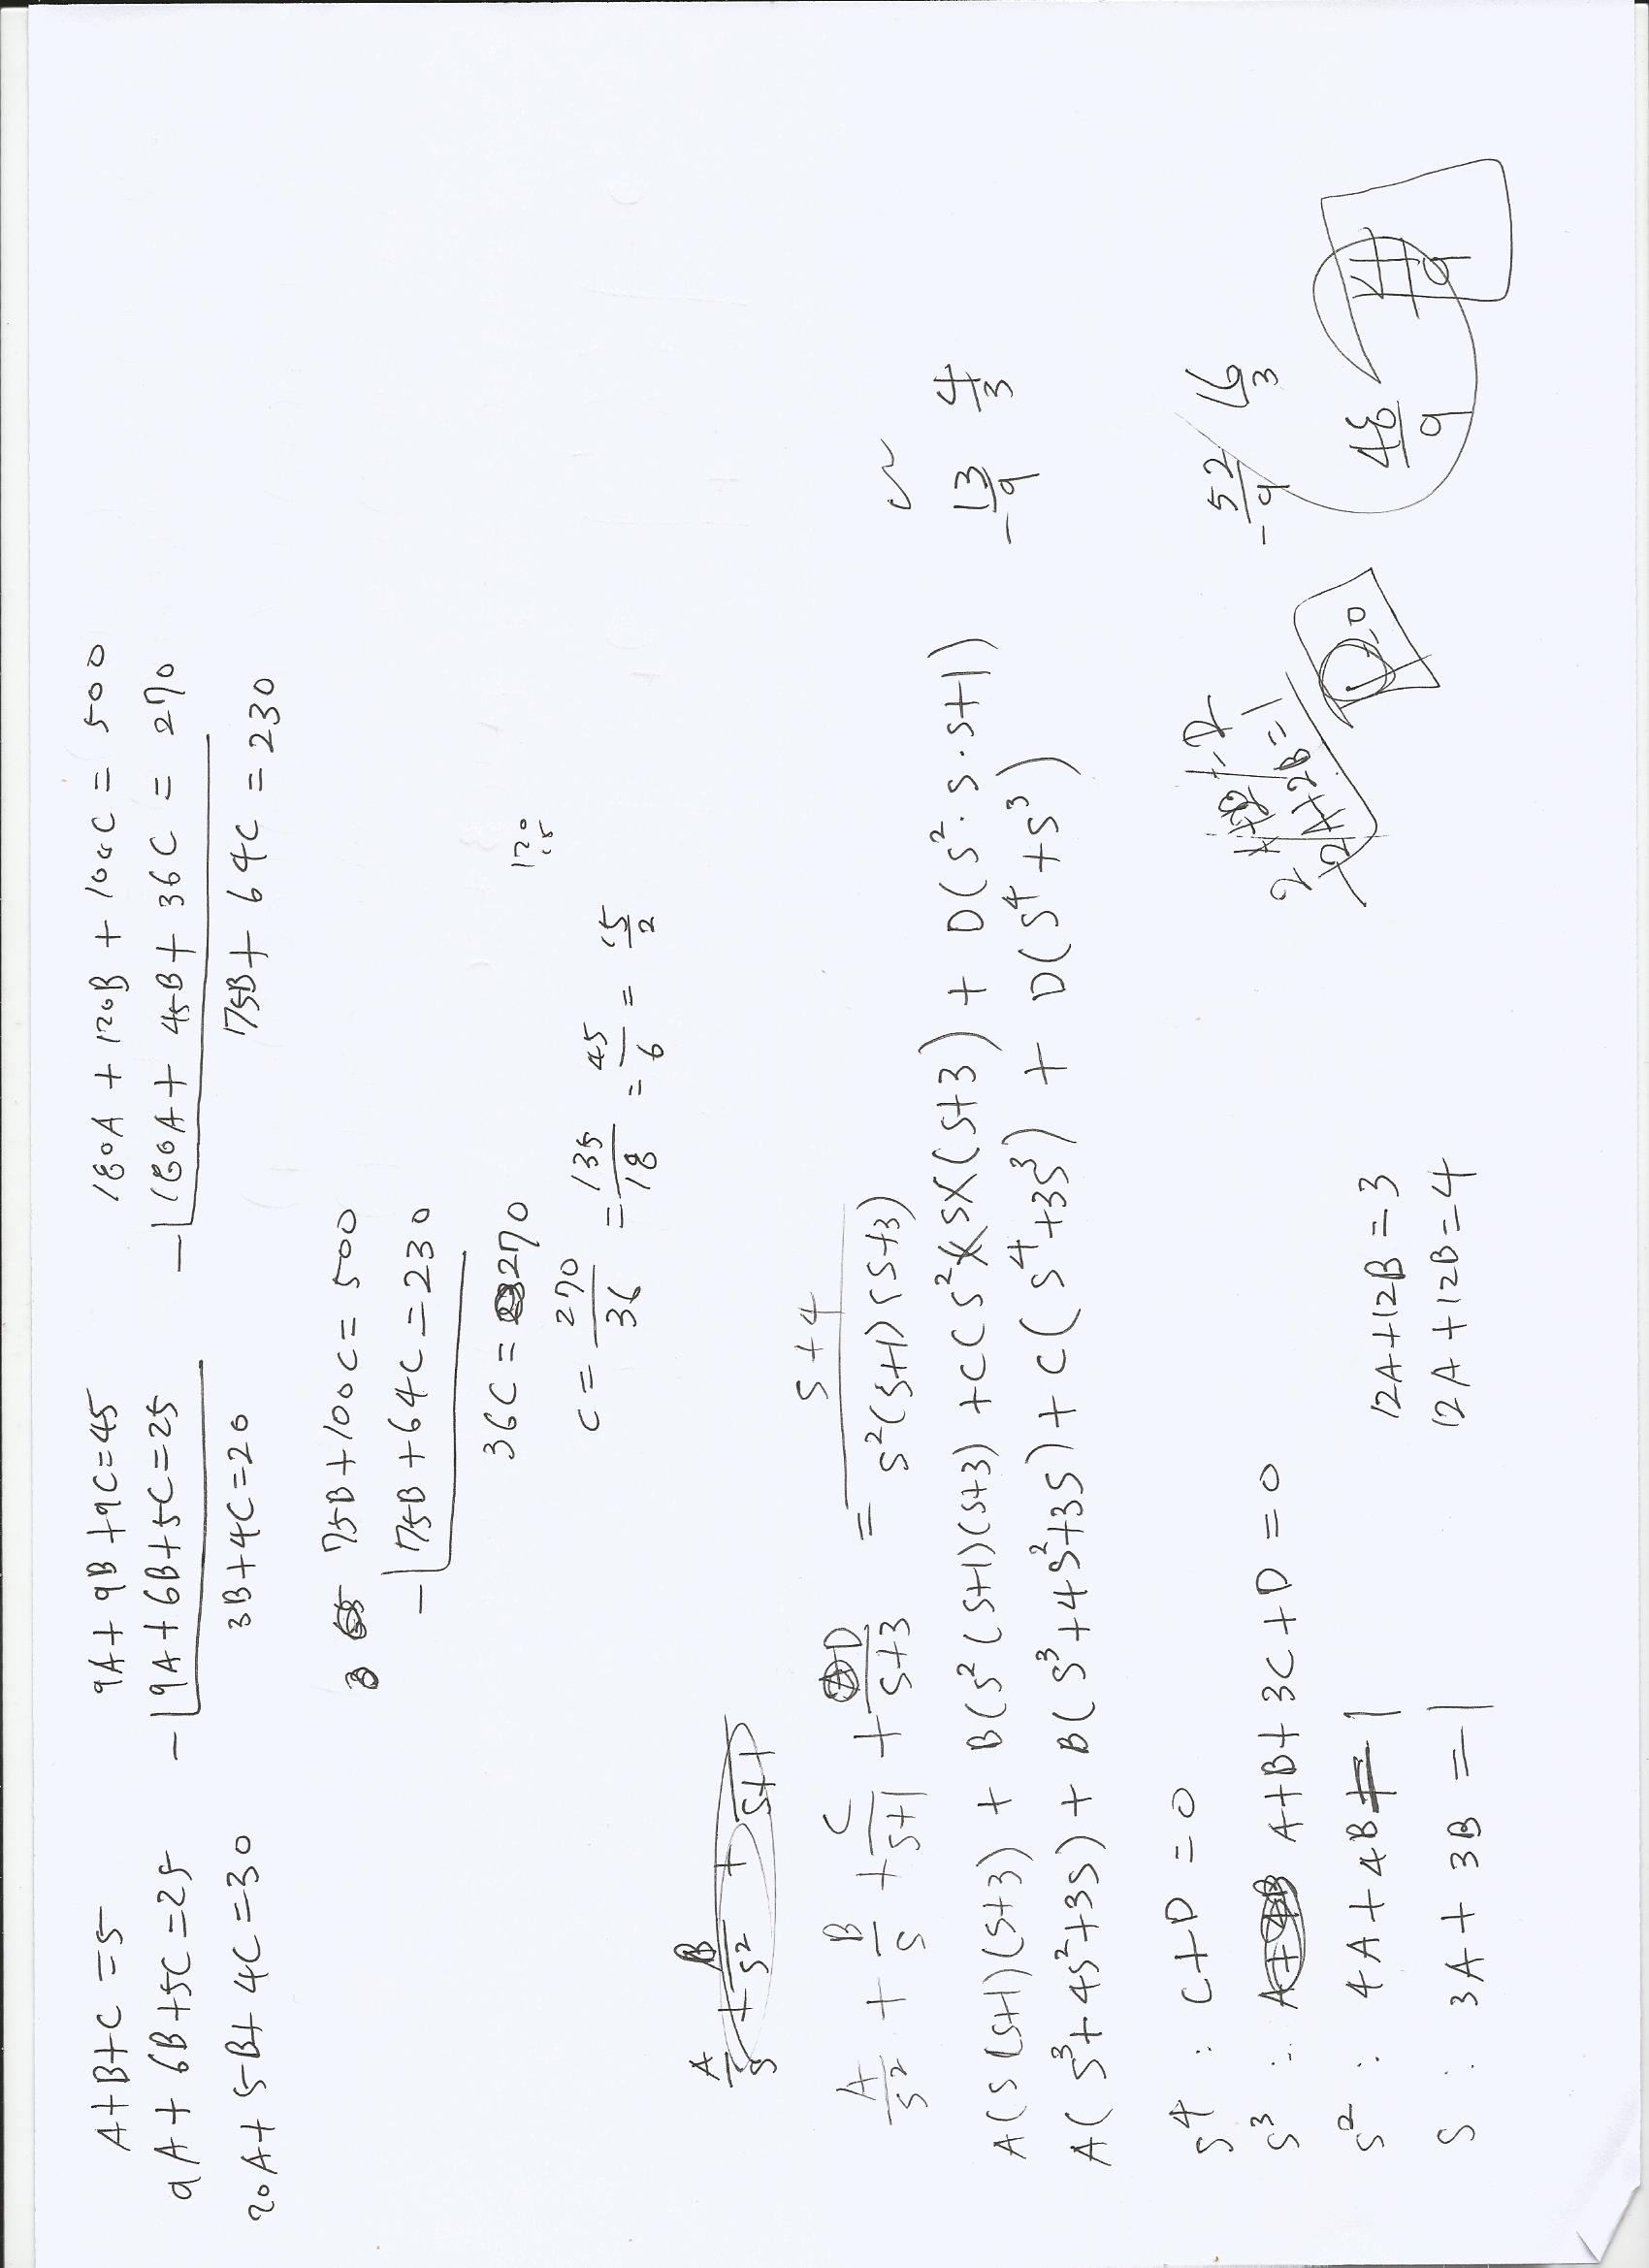 A+B+C = 5
9A + 6B + 5C = 25
20A + 5B + 4C = 30
9A + 9B + 9C = 45
- 9A + 6B + 5C = 25
3B + 4C = 20
180A + 120B + 100C = 500
- 180A + 45B + 36C = 270
75B + 64C = 230
3 75B + 100C = 500
- 75B + 64C = 230
36C = 270
C = 270/36 = 135/18 = 45/6 = 15/2
120
15
A/s + B/s² + /s+1
A/s² + B/s + C/s+1 + D/s+3 = s+4/s²(s+1)(s+3)
A(s(s+1)(s+3) + B(s²(s+1)(s+3) + C(s²×s×(s+3) + D(s²·s·s+1)
A(s³+4s²+3s) + B(s³+4s²+3s) + C(s⁴+3s³) + D(s⁴+s³)
-13/9 4/3
s⁴ : C+D = 0
s³ : A+B+3C+D = 0
s² : 4A+4B = 1
s : 3A + 3B = 1
12A+12B = 3
12A+12B = 4
2A+2B=1
D=0
-52/9 16/3
48/9 4/9